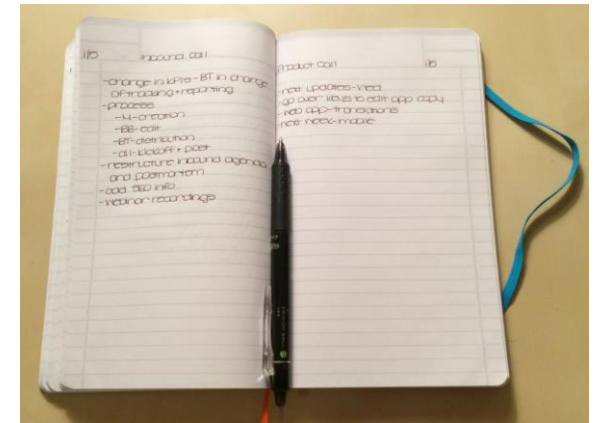 1/15 Inbound Call
-change in KPIs - BT in charge
of tracking + reporting
-process
-M-creation
-BB-edit
-BT-distribution
-all-kickoff + post
-restructure inbound agenda
and postmortem
-add SEO info
-Webinar recordings
Product Call 1/15
-next updates-Wed.
-go over keys to edit app copy
-Web app-translations
-next week-mobile